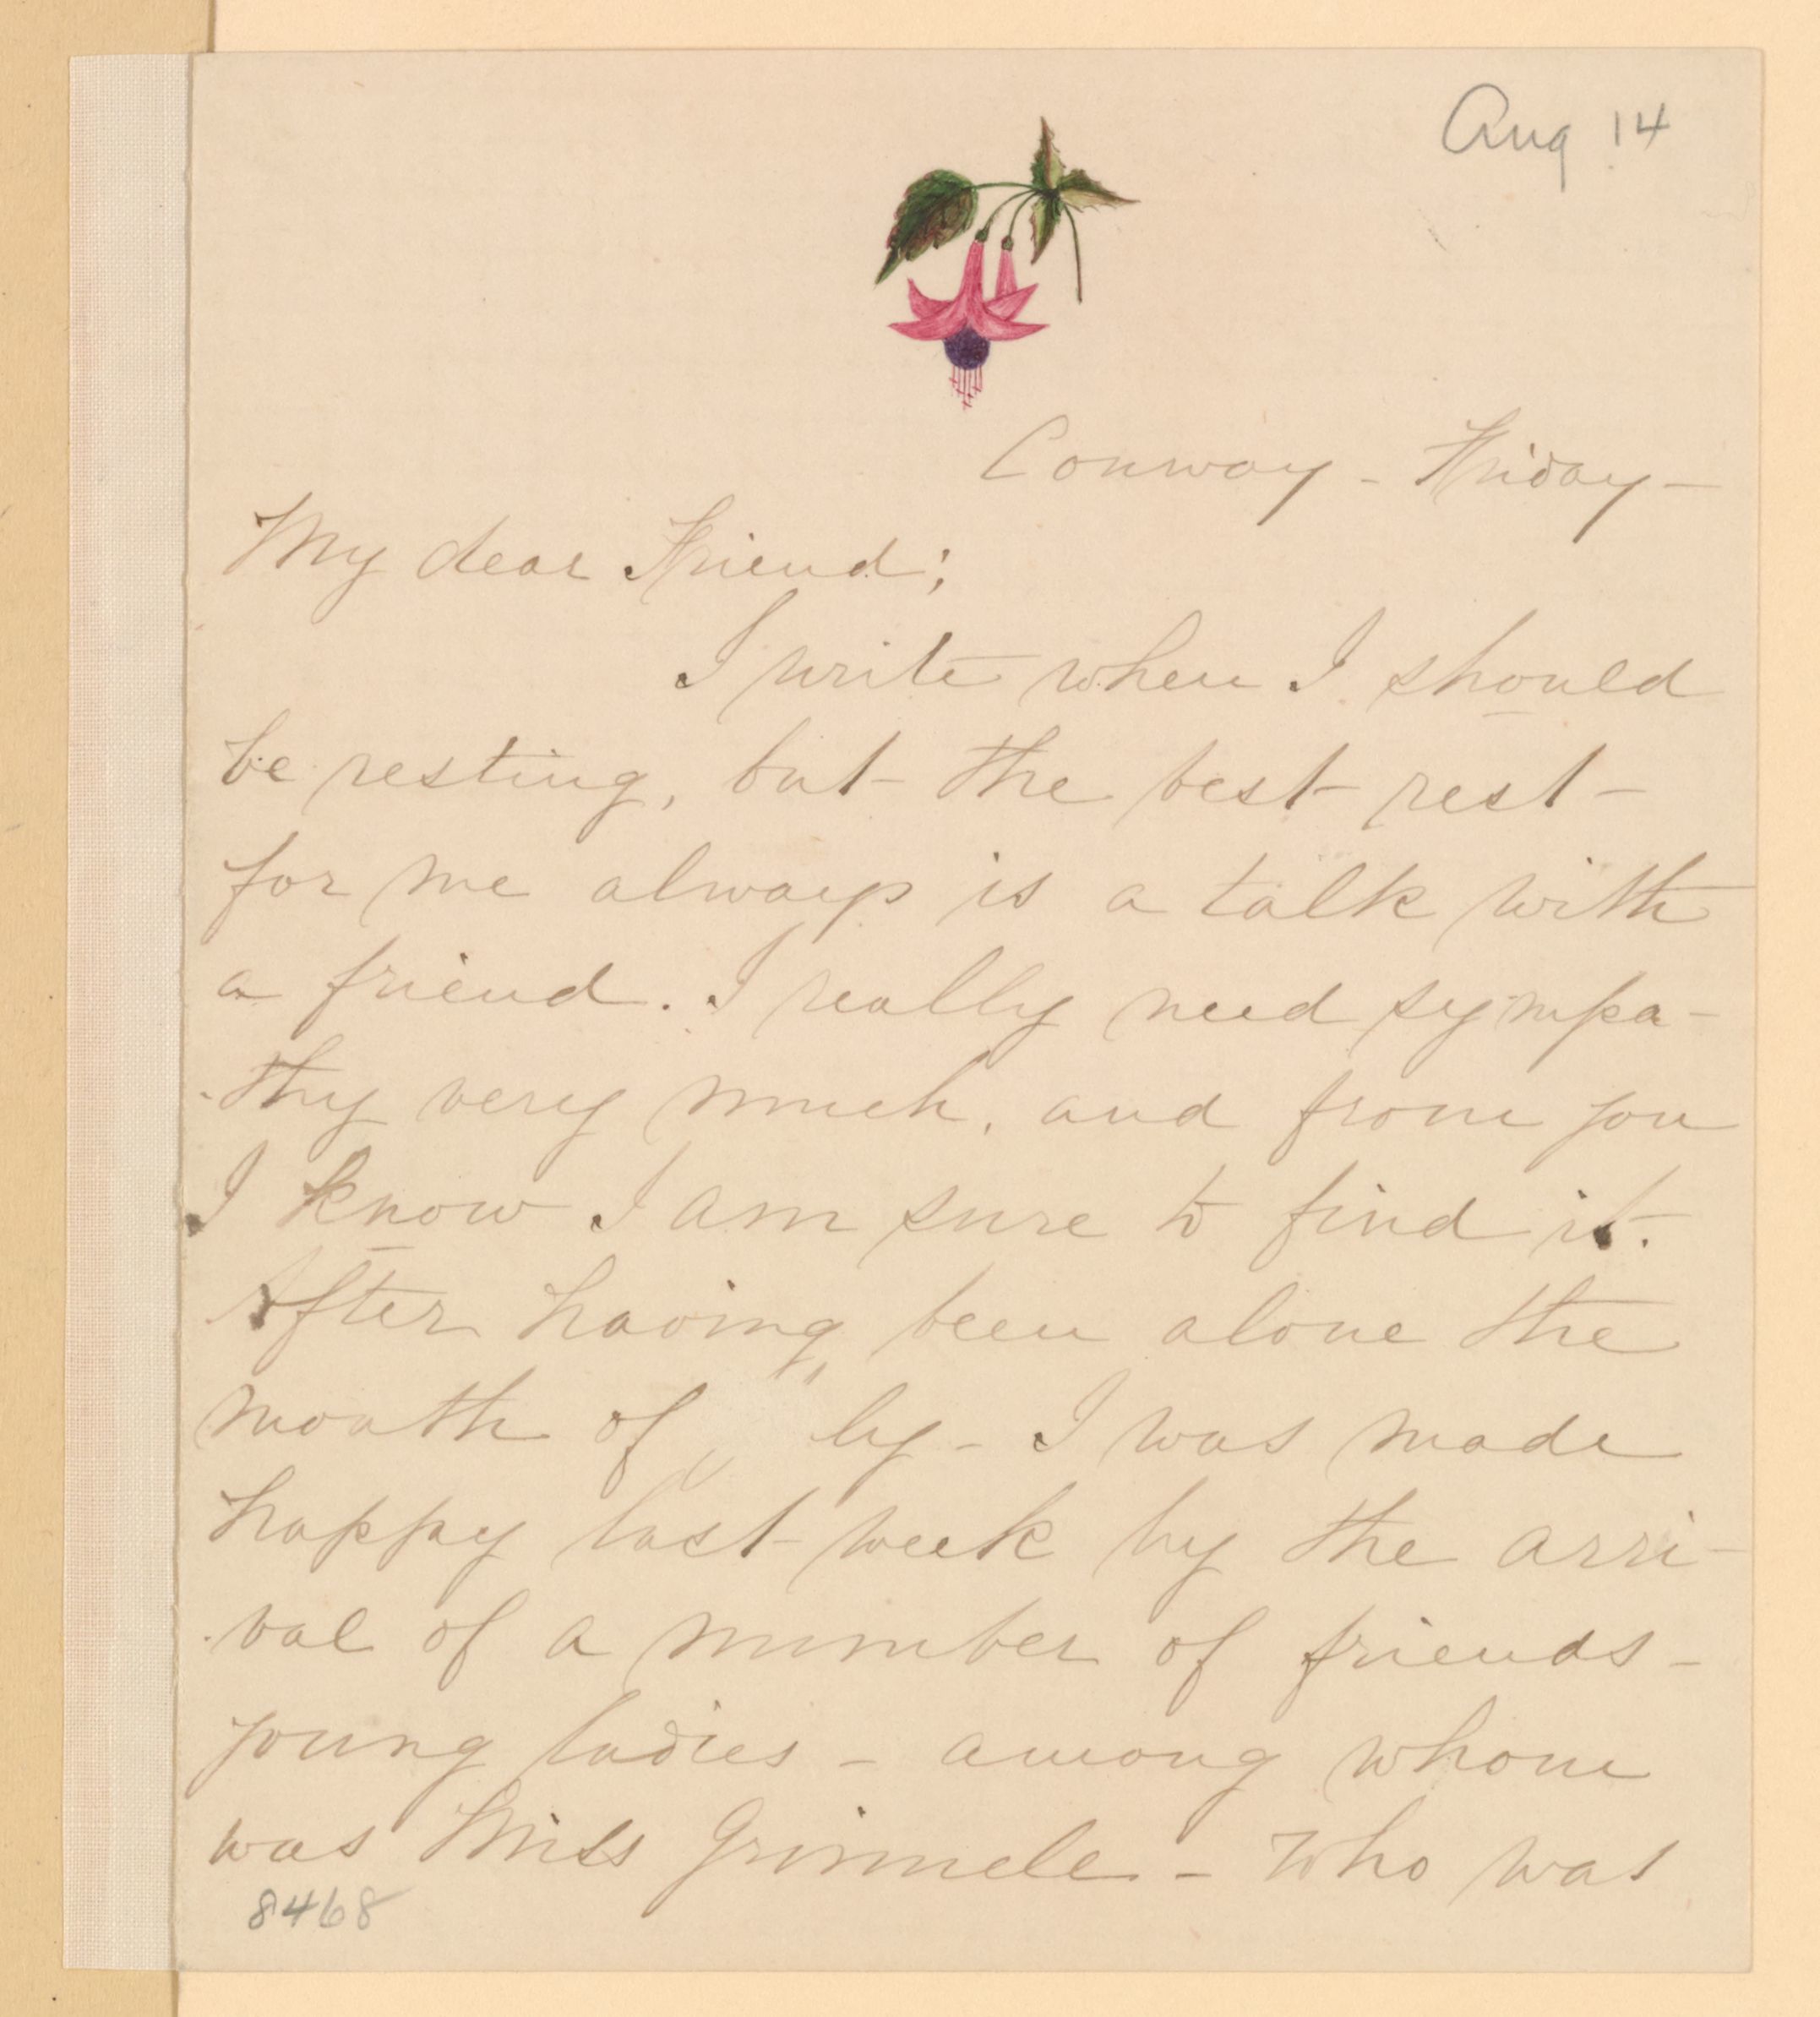 Aug 14
Conway - Friday -
My dear Friend;
I write when I should
be resting, but the best rest
for me always is a talk with
a friend. I really need sympa-
thy very much, and from you
I know I am sure to find it.
After having been alone the
month of ly - I was made
happy last week by the arri-
val of a number of friends -
young ladies - among whom
was Miss Grinnell - who was
8468